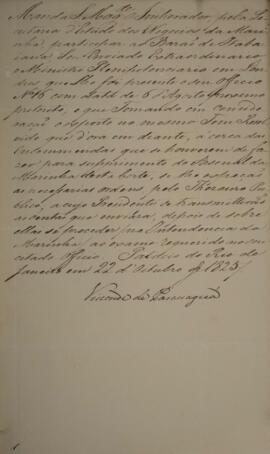 Manda S. Mag.e o Imperador, pela Se-
cretaria d'Estado dos Negocios da Mari-
nha, participar ao Barão de Itabai-
ana Seu Enviado Extraordinario e
Ministro Plenipotenciario em Lon-
dres que Lhe foi presente o seu Officio
Nº 6 com data de 6 d'Agosto proximo
preterito, e que Tomando em conside-
ração o exposto no mesmo Tem Resol-
vido que d'ora em diante, á cerca das
Encommendas que se houverem de fa-
zer para supprimento do Arsenal da
Marinha desta Corte, se lhe expeção
as necessarias ordens pelo Thezouro Pu-
blico, a cujo Presidente se transmittirão
as contas que enviára, depois de sobre
ellas se proceder na Intendencia da
Marinha, ao exame requerido no su-
pracitado Officio. Palacio do Rio de
Janeiro em 22 d'Outubro de 1825
Visconde de Paranaguá